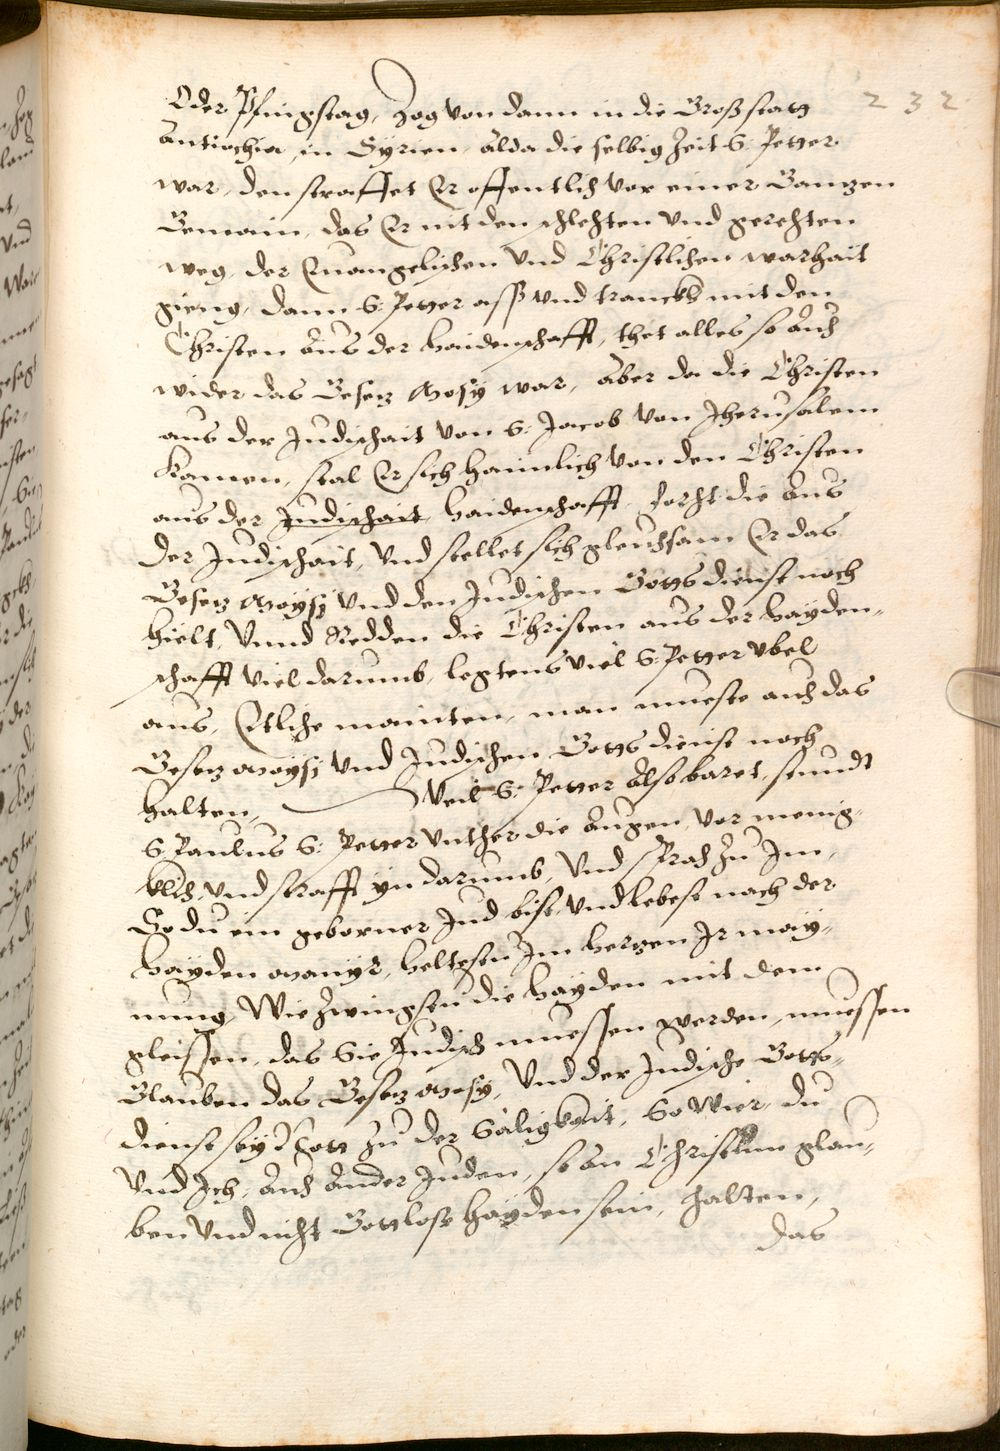 232
Oder Pfingstag, Zog von dann in die Großstatt
Antiochia, in Syrien, alda die selbig Zeit S: Petter
war, den straffet Er offentlich vor einer Ganzen
Gemain, das Er nit den schlechten vnd gerechten
weg, der Euangelischen vnd Christlichen warhait
gieng, dann S: Petter aß vnd tranckh mit den
Christen aus der haidenschafft, thet alles so auch
wider das Gesetz Mosy war, aber da die Christen
aus der Judischait von S: Jacob von Jherusalem
kamen, stal Er sich haimlich von den Christen
aus der Judischait haidenschafft, forcht die aus
der Judischait, vnd stellet sich gleuchsam Er das
Gesetz Moysi vnd den Judischen Gottsdienst noch
hielt, Vnnd Redden die Christen aus der hayden-
schafft viel darumb, legtens viel S: Petter vbel
aus, Etliche mainten, man mueste auch das
Gesetz Moysi vnd Judischen Gottsdienst noch
halten, Weil S: Petter also baret, stundt
S: Paulus S: Petter vnther die Augen, vor menig-
klich, vnd strafft yn darumb, Vnd sprach zu Im,
So du ein geborner Jud bist, vnd lebest nach der
hayden manyr, heltestu Im herzen Ir may-
nung, Wie Zwingstu die hayden mit dem
gleissen, das Sie Judisch muessen werden, muessen
Glauben das Gesetz Mosy, Vnd der Judische Gotts-
dienst sey Nott zu der Säligkait, So Wier, du
vnd Ich, auch ander Juden, so an Christum glau-
ben vnd nicht Gottlose hayden sein, halten,
das